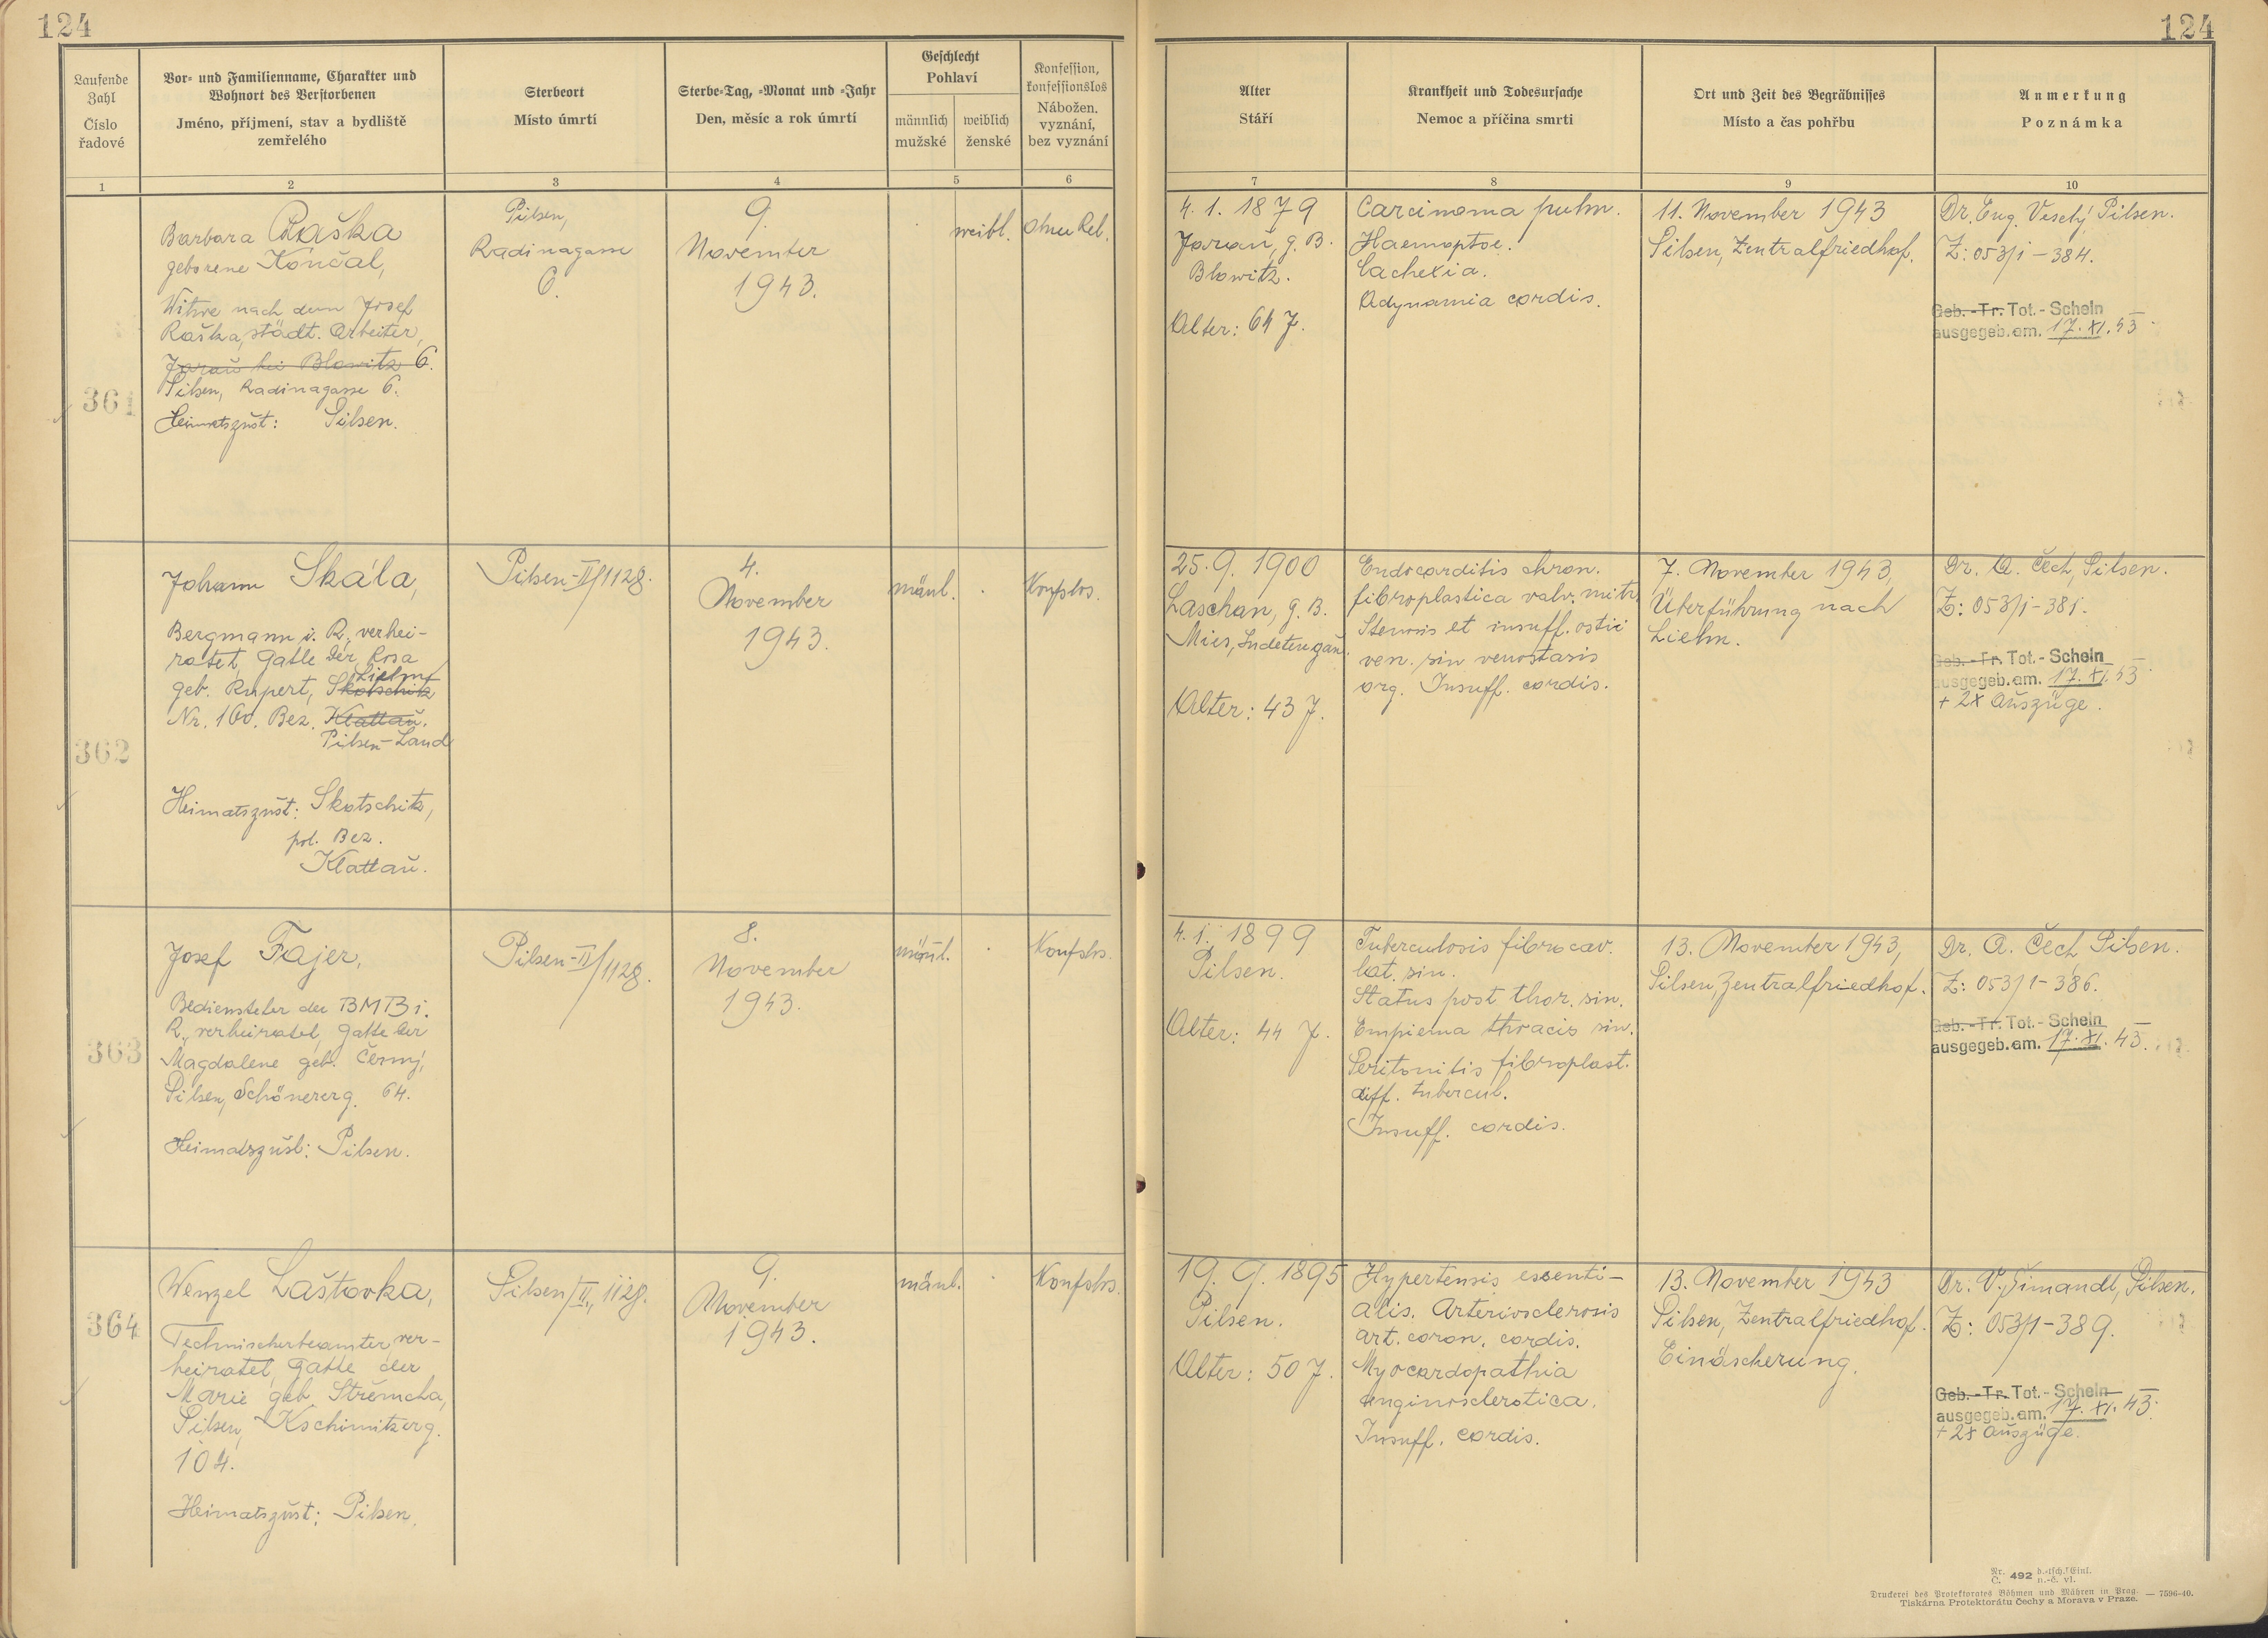 124
124
Laufende Zahl
Číslo řadové
Vor- und Familienname, Charakter und
Wohnort des Verstorbenen
Jméno, příjmení, stav a bydliště
zemřelého
Sterbeort
Místo úmrtí
Sterbe-Tag, -Monat und -Jahr
Den, měsíc a rok úmrtí
Geschlecht
Pohlaví
männlich
mužské
weiblich
ženské
Konfession,
konfessionslos
Nábožen.
vyznání,
bez vyznání
Alter
Stáří
Krankheit und Todesursache
Nemoc a příčina smrti
Ort und Zeit des Begräbnisses
Místo a čas pohřbu
Anmerkung
Poznámka
1
2
3
4
5
6
7
8
9
10
361
Barbara Raška
geborene Končal,
Witwe nach dem Josef
Raška, städt. Arbeiter,
Jarau bei Blowitz 6.
Pilsen, Radinagasse 6.
Heimatszust: Pilsen.
Pilsen,
Radinagasse
6.
9.
November
1943.
weibl.
ohne Rel.
4. 1. 1879
Jarau, g. B.
Blowitz.
Alter: 64 J.
Carcinoma pulm.
Haemoptoe.
Cachexia.
Adynamia cordis.
11. November 1943
Pilsen, Zentralfriedhof.
Dr. Eug. Veselý, Pilsen.
Z: 053/1-384.
Geb.-Tr. Tot.-Schein
ausgegeb. am. 17. XI. 43
362
Johann Skála,
Bergmann i. R., verhei-
ratet, Gatte der Rosa
Liehn
geb. Rupert, Skotschitz
Nr. 160. Bez. Klattau.
Pilsen-Land
Heimatszust: Skotschitz,
pol. Bez.
Klattau.
Pilsen-II/1128.
4.
November
1943.
mänl.
Konfslos.
25. 9. 1900
Laschan, g. B.
Mies, Sudetengau.
Alter: 43 J.
Endocarditis chron.
fibroplastica valv. mitr.
Stenosis et insuff. ostii
ven. sin venostasis
org. Insuff. cordis.
7. November 1943,
Überführung nach
Liehn.
Dr. A. Čech, Pilsen.
Z: 053/1-381.
Geb.-Tr. Tot.-Schein
ausgegeb. am. 17. XI. 43
+ 2x Auszüge.
363
Josef Fajer,
Bediensteter der BMB i.
R., verheiratet, Gatte der
Magdalene geb. Černý,
Pilsen, Schönererg. 64.
Heimatszust: Pilsen.
Pilsen-II/1128.
8.
November
1943.
mänl.
Konfslos.
4. 1. 1899
Pilsen.
Alter: 44 J.
Tuberculosis fibrocav.
lat. sin.
Status post thor. sin.
Empiema thracis sin.
Peritonitis fibroplast.
diff. tubercul.
Insuff. cordis.
13. November 1943,
Pilsen, Zentralfriedhof.
Dr. A. Čech, Pilsen.
Z: 053/1-386.
Geb.-Tr. Tot.-Schein
ausgegeb. am. 17. XI. 43.
364
Wenzel Laštovka,
Technischerbeamter ver-
heiratet, Gatte der
Marie geb. Střemcha,
Pilsen, Kschimitzerg.
104.
Heimatszust: Pilsen.
Pilsen/II., 1128.
9.
November
1943.
mänl.
Konfslos.
19. 9. 1895
Pilsen.
Alter: 50 J.
Hypertensis essenti-
alis. Arteriosclerosis
art. coron. cordis.
Myocardopathia
anginosclerotica.
Insuff. cordis.
13. November 1943
Pilsen, Zentralfriedhof.
Einäscherung.
Dr. V. Šimandl, Pilsen.
Z: 053/1-389.
Geb.-Tr. Tot.-Schein
ausgegeb. am. 17. XI. 43.
+ 2x Auszüge.
Nr. C. 492 d.-tsch. Einl. n.-č. vl.
Druckerei des Protektorates Böhmen und Mähren in Prag. — 7596-40.
Tiskárna Protektorátu Čechy a Morava v Praze.